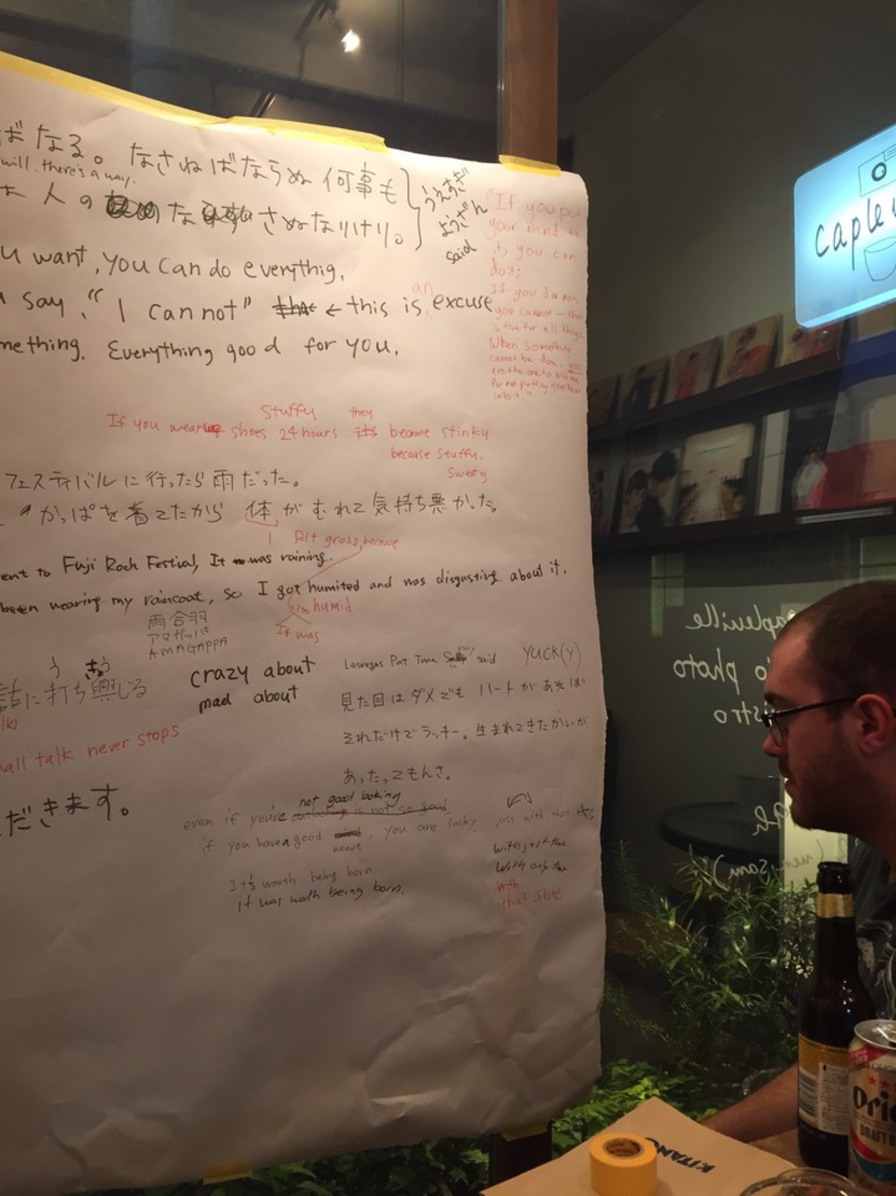 ばなる。なさねばならぬ 何事も
will. there's a way.
人の な さぬなりけり。
うえすぎ
ようざん
said
u want, you can do everythig.
say, "I cannot" ← this is an excuse
mething. Everything good for you.
"If you put
your mind to
it, you can
do it;
If you do not,
you cannot — this
is true for all things.
When something
cannot be done, you
are the one to blame
for not putting your heart
into it."
Stuffy they
If you wear shoes 24 hours became stinky
because stuffy.
Sweaty
フェスティバルに行ったら雨だった。
かっぱを着てたから 体がむれて気持ち悪かった。
I felt gross because
ent to Fuji Rock Festival, It was raining.
been wearing my raincoat, so I got humited and was disgusting about it.
humid
It was
雨合羽
アマガッパ
AMAGAPPA
う きょう
話に打ち興じる
all talk never stops
crazy about
mad about
said yuck(y)
見た目はダメでも ハートがあれば
それだけでラッキー。生まれてきたかいが
あったってもんさ。
だきます。
not good looking
even if you're outlooking is not so good
if you have a good heart, you are lucky, just with that
with just that
with only that
with
that alone
It's worth being born
it was worth being born.
caple
capleville
photo
istro
KITANO
Orio
DRAFT B